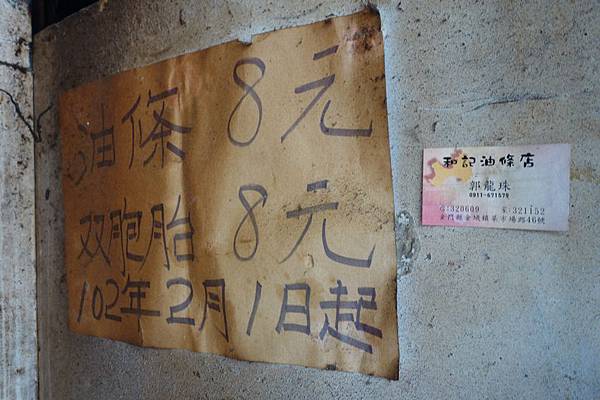 油條 8元
双胞胎 8元
102年2月1日起
和記油條店
郭龍珠
0911-671579
店:328609 家:321152
金門縣金城鎮菜市場路46號